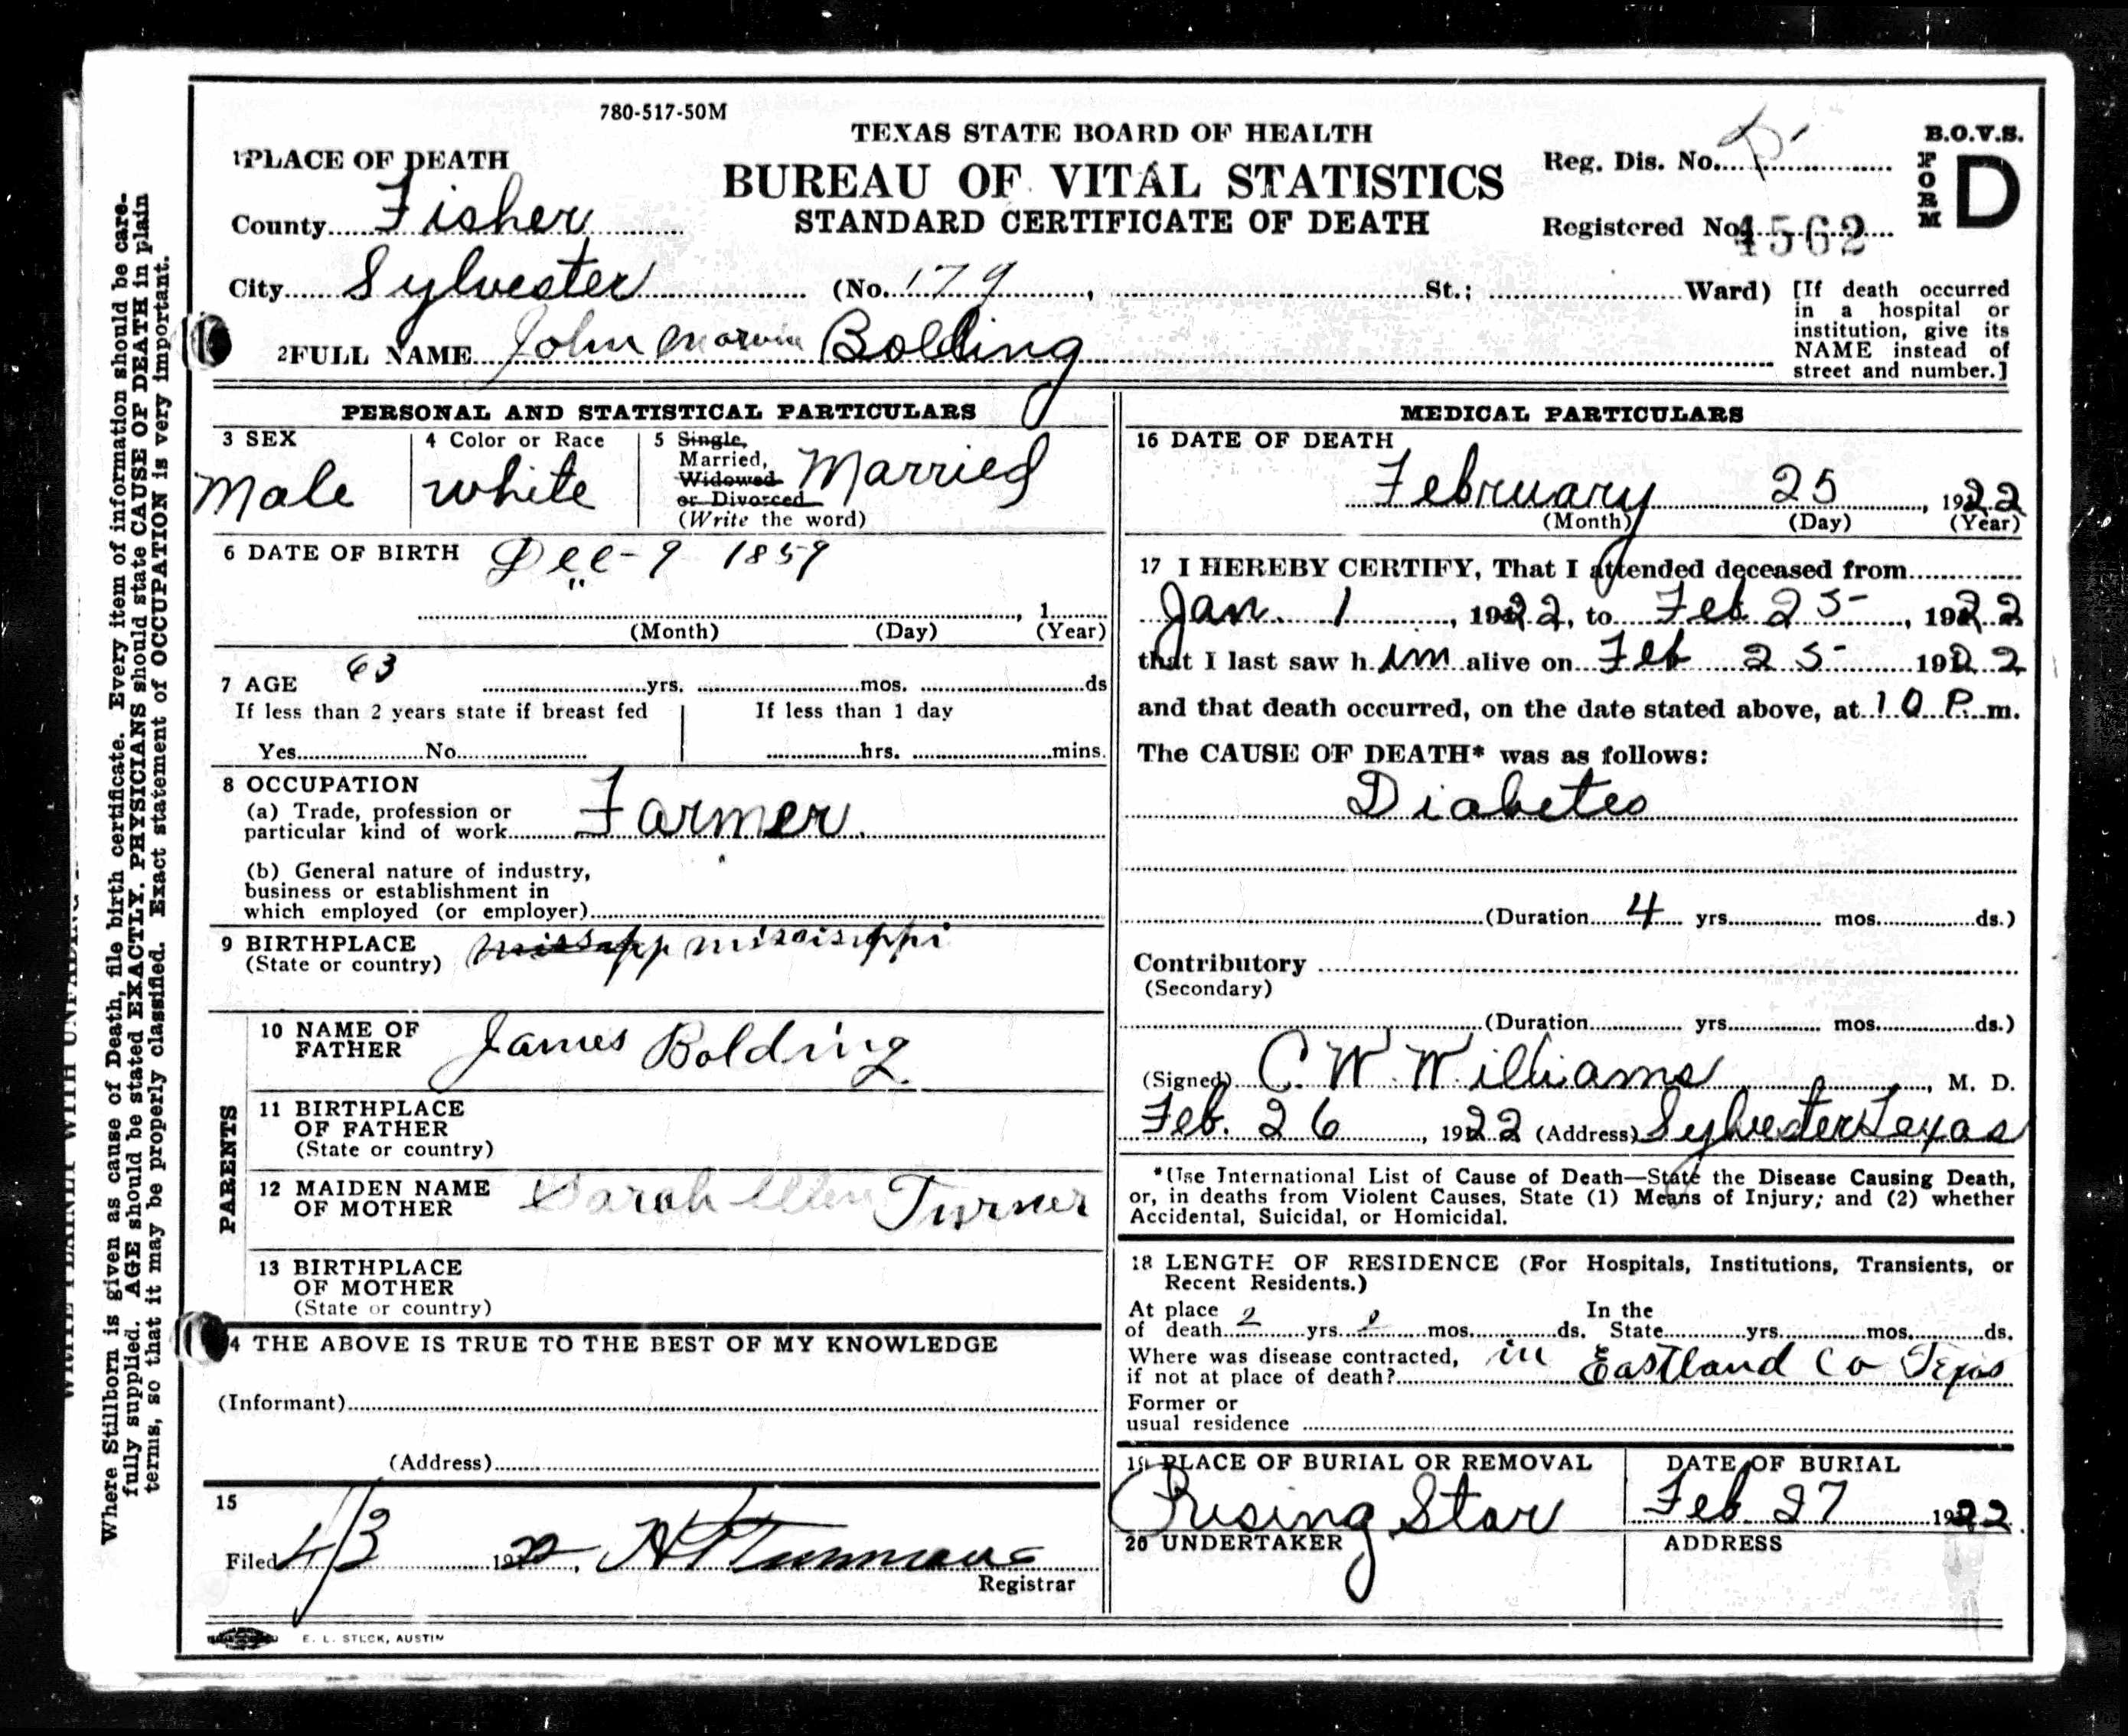 780-517-50M
TEXAS STATE BOARD OF HEALTH
BUREAU OF VITAL STATISTICS
STANDARD CERTIFICATE OF DEATH
B.O.V.S.
FORM D
Reg. Dis. No.
Registered No. 4562
1 PLACE OF DEATH
County Fisher
City Sylvester (No. 179, St.; Ward)
[If death occurred
in a hospital or
institution, give its
NAME instead of
street and number.]
2 FULL NAME John Marvin Bolding
PERSONAL AND STATISTICAL PARTICULARS
3 SEX
Male
4 Color or Race
white
5 Single,
Married,
Widowed
or Divorced
(Write the word)
Married
6 DATE OF BIRTH Dec-9 1859
, 1
(Month) (Day) (Year)
63
7 AGE yrs. mos. ds
If less than 2 years state if breast fed
Yes No
If less than 1 day
hrs. mins.
8 OCCUPATION
(a) Trade, profession or
particular kind of work Farmer
(b) General nature of industry,
business or establishment in
which employed (or employer)
9 BIRTHPLACE
(State or country) missapp missisippi
PARENTS
10 NAME OF
FATHER James Bolding
11 BIRTHPLACE
OF FATHER
(State or country)
12 MAIDEN NAME
OF MOTHER Sarah Ellen Turner
13 BIRTHPLACE
OF MOTHER
(State or country)
14 THE ABOVE IS TRUE TO THE BEST OF MY KNOWLEDGE
(Informant)
(Address)
15
Filed 4/3 1922,
Registrar
E. L. STECK, AUSTIN
MEDICAL PARTICULARS
16 DATE OF DEATH
February 25, 1922
(Month) (Day) (Year)
17 I HEREBY CERTIFY, That I attended deceased from
Jan. 1, 1922, to Feb 25, 1922
that I last saw h im alive on Feb 25 1922
and that death occurred, on the date stated above, at 10 P. m.
The CAUSE OF DEATH* was as follows:
Diabetes
(Duration 4 yrs. mos. ds.)
Contributory
(Secondary)
(Duration yrs. mos. ds.)
(Signed) C. W. Williams, M. D.
Feb. 26, 1922 (Address) Sylvester Texas
*(Use International List of Cause of Death—State the Disease Causing Death,
or, in deaths from Violent Causes, State (1) Means of Injury; and (2) whether
Accidental, Suicidal, or Homicidal.
18 LENGTH OF RESIDENCE (For Hospitals, Institutions, Transients, or
Recent Residents.)
At place In the
of death 2 yrs. mos. ds. State yrs. mos. ds.
Where was disease contracted,
if not at place of death? in Eastland Co Texas
Former or
usual residence
19 PLACE OF BURIAL OR REMOVAL
Rising Star
DATE OF BURIAL
Feb 27 1922
20 UNDERTAKER
ADDRESS
Where Stillborn is given as cause of Death, file birth certificate. Every item of information should be care-
fully supplied. AGE should be stated EXACTLY. PHYSICIANS should state CAUSE OF DEATH in plain
terms, so that it may be properly classified. Exact statement of OCCUPATION is very important.